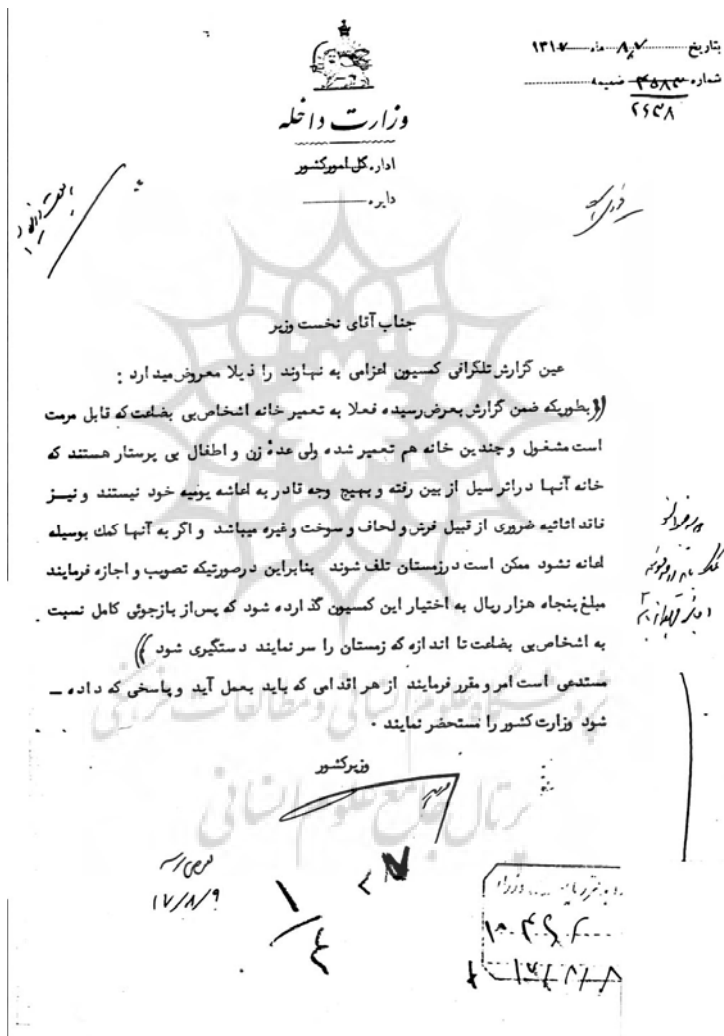 بتاریخ ۸/۷ ماه ۱۳۱۷
شماره ۴۵۸۳ ضمیمه
۲۶۳۸
وزارت داخله
اداره کل امور کشور
دایره
جناب آقای نخست وزیر
عین گزارش تلگرافی کمسیون اعزامی به نهاوند را ذیلا معروض میدارد :
((بطوریکه ضمن گزارش بعرض رسیده فعلا به تعمیر خانه اشخاص بی بضاعت که قابل مرمت
است مشغول و چندین خانه هم تعمیر شده ولی عدهٔ زن و اطفال بی پرستار هستند که
خانه آنها در اثر سیل از بین رفته و بهیچ وجه قادر به اعاشه یومیه خود نیستند و نیز
فاقد اثاثیه ضروری از قبیل فرش و لحاف و سوخت وغیره میباشد و اگر به آنها کمک بوسیله
اعانه نشود ممکن است در زمستان تلف شوند بنابراین درصورتیکه تصویب و اجازه فرمایند
مبلغ پنجاه هزار ریال به اختیار این کمسیون گذارده شود که پس از بازجوئی کامل نسبت
به اشخاص بی بضاعت تا اندازه که زمستان را سر نمایند دستگیری شود ))
مستدعی است امر و مقرر فرمایند از هر اقدامی که باید بعمل آید و پاسخی که داده ـ
شود وزارت کشور را مستحضر نمایند ۰
وزیر کشور
۱۷/۸/۹
پژوهشگاه علوم انسانی و مطالعات فرهنگی
پرتال جامع علوم انسانی